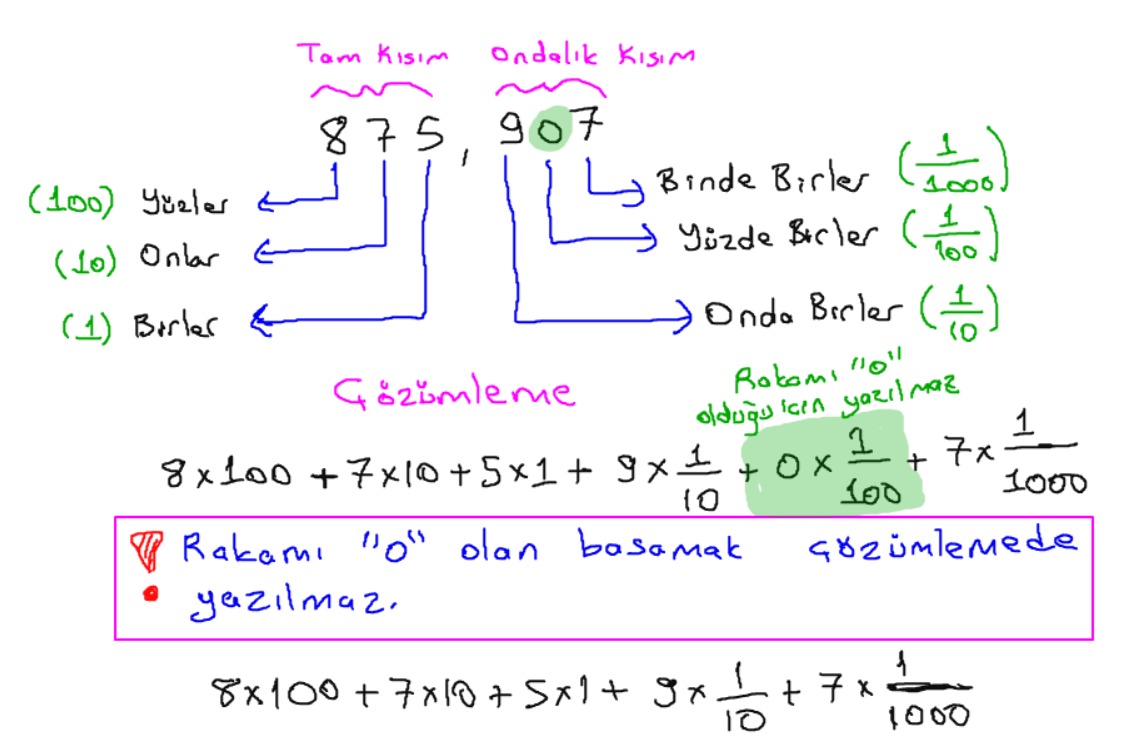 Tam Kısım Ondalık Kısım
875,907
(100) Yüzler
(10) Onlar
(1) Birler
Binde Birler (1/1000)
Yüzde Birler (1/100)
Onda Birler (1/10)
Çözümleme
Rakamı "0"
olduğu için yazılmaz
8x100 + 7x10 + 5x1 + 9x1/10 + 0x1/100 + 7x1/1000
Rakamı "0" olan basamak çözümlemede
yazılmaz.
8x100 + 7x10 + 5x1 + 9x1/10 + 7x1/1000